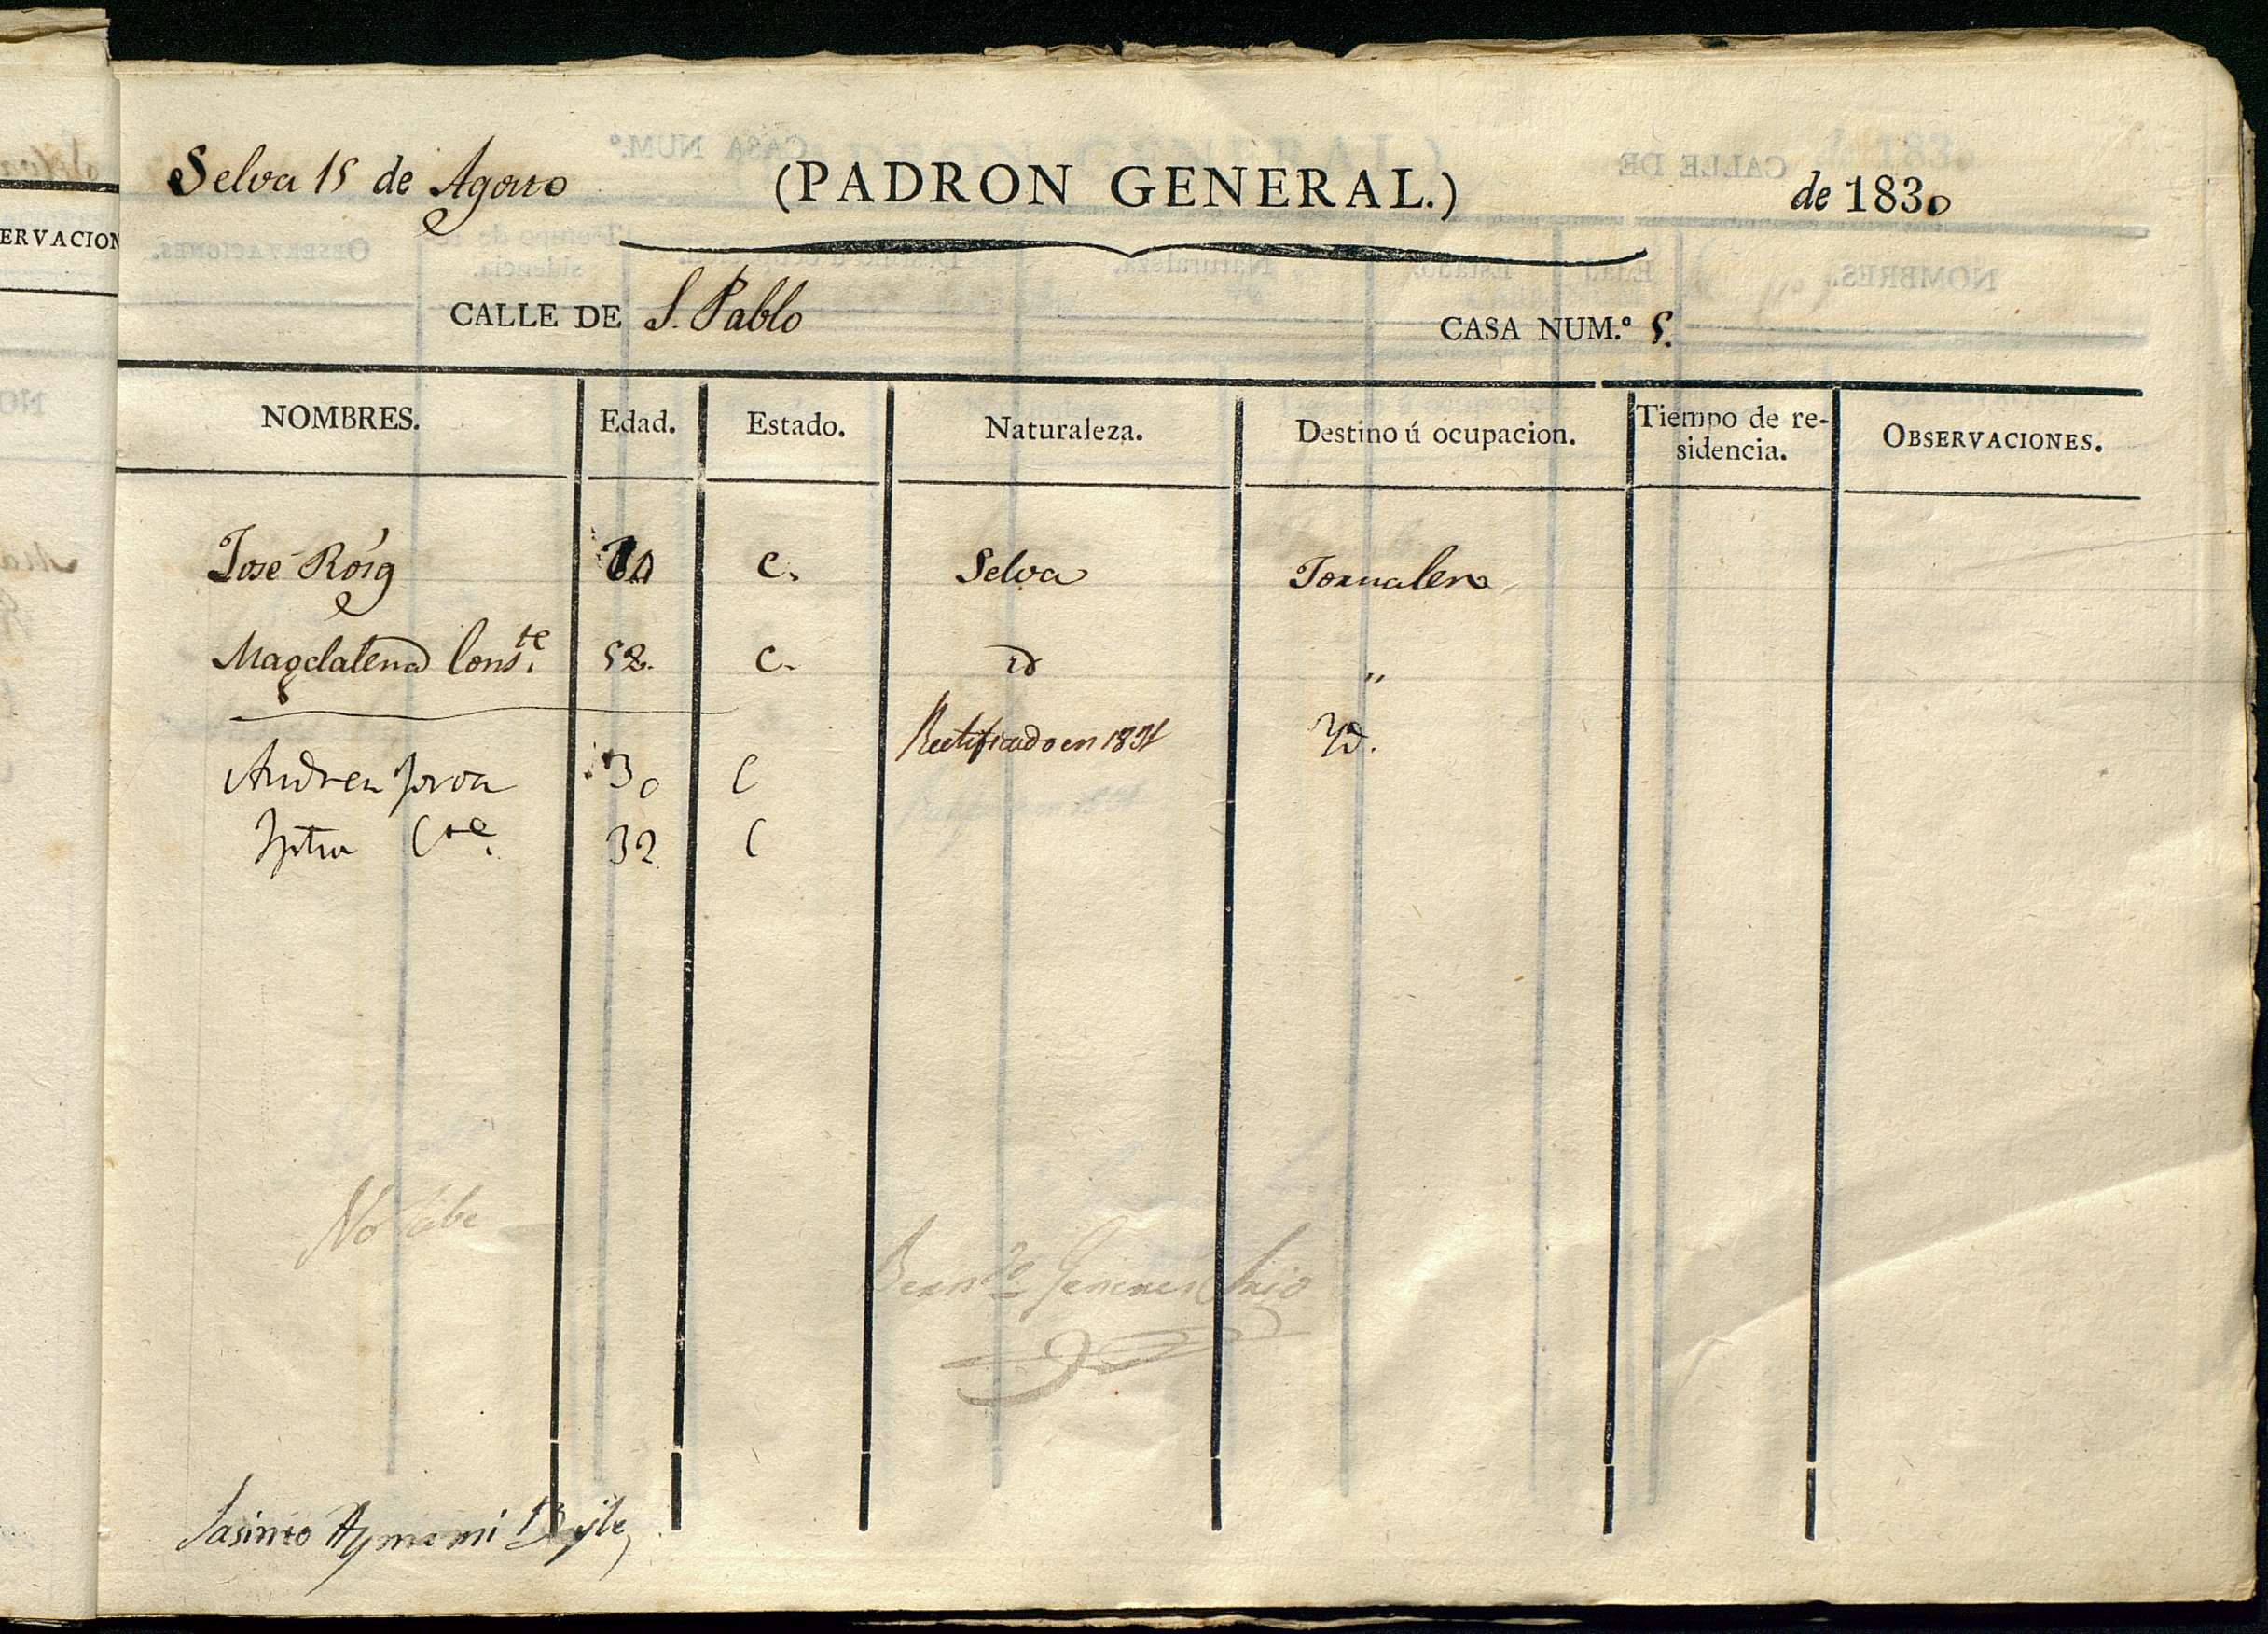 Selva 15 de Agosto (PADRON GENERAL.) de 1830
CALLE DE S. Pablo CASA NUM.º 5.
NOMBRES. Edad. Estado. Naturaleza. Destino ú ocupacion. Tiempo de re-
sidencia. OBSERVACIONES.
José Róig C. Selva Jornalero
Magdalena Cons.te 52. C. id "
Rectificado en 1831 Yd.
Andreu 30 C
Cte. 32 C
No sabe
Jasinto Aymami Bayle